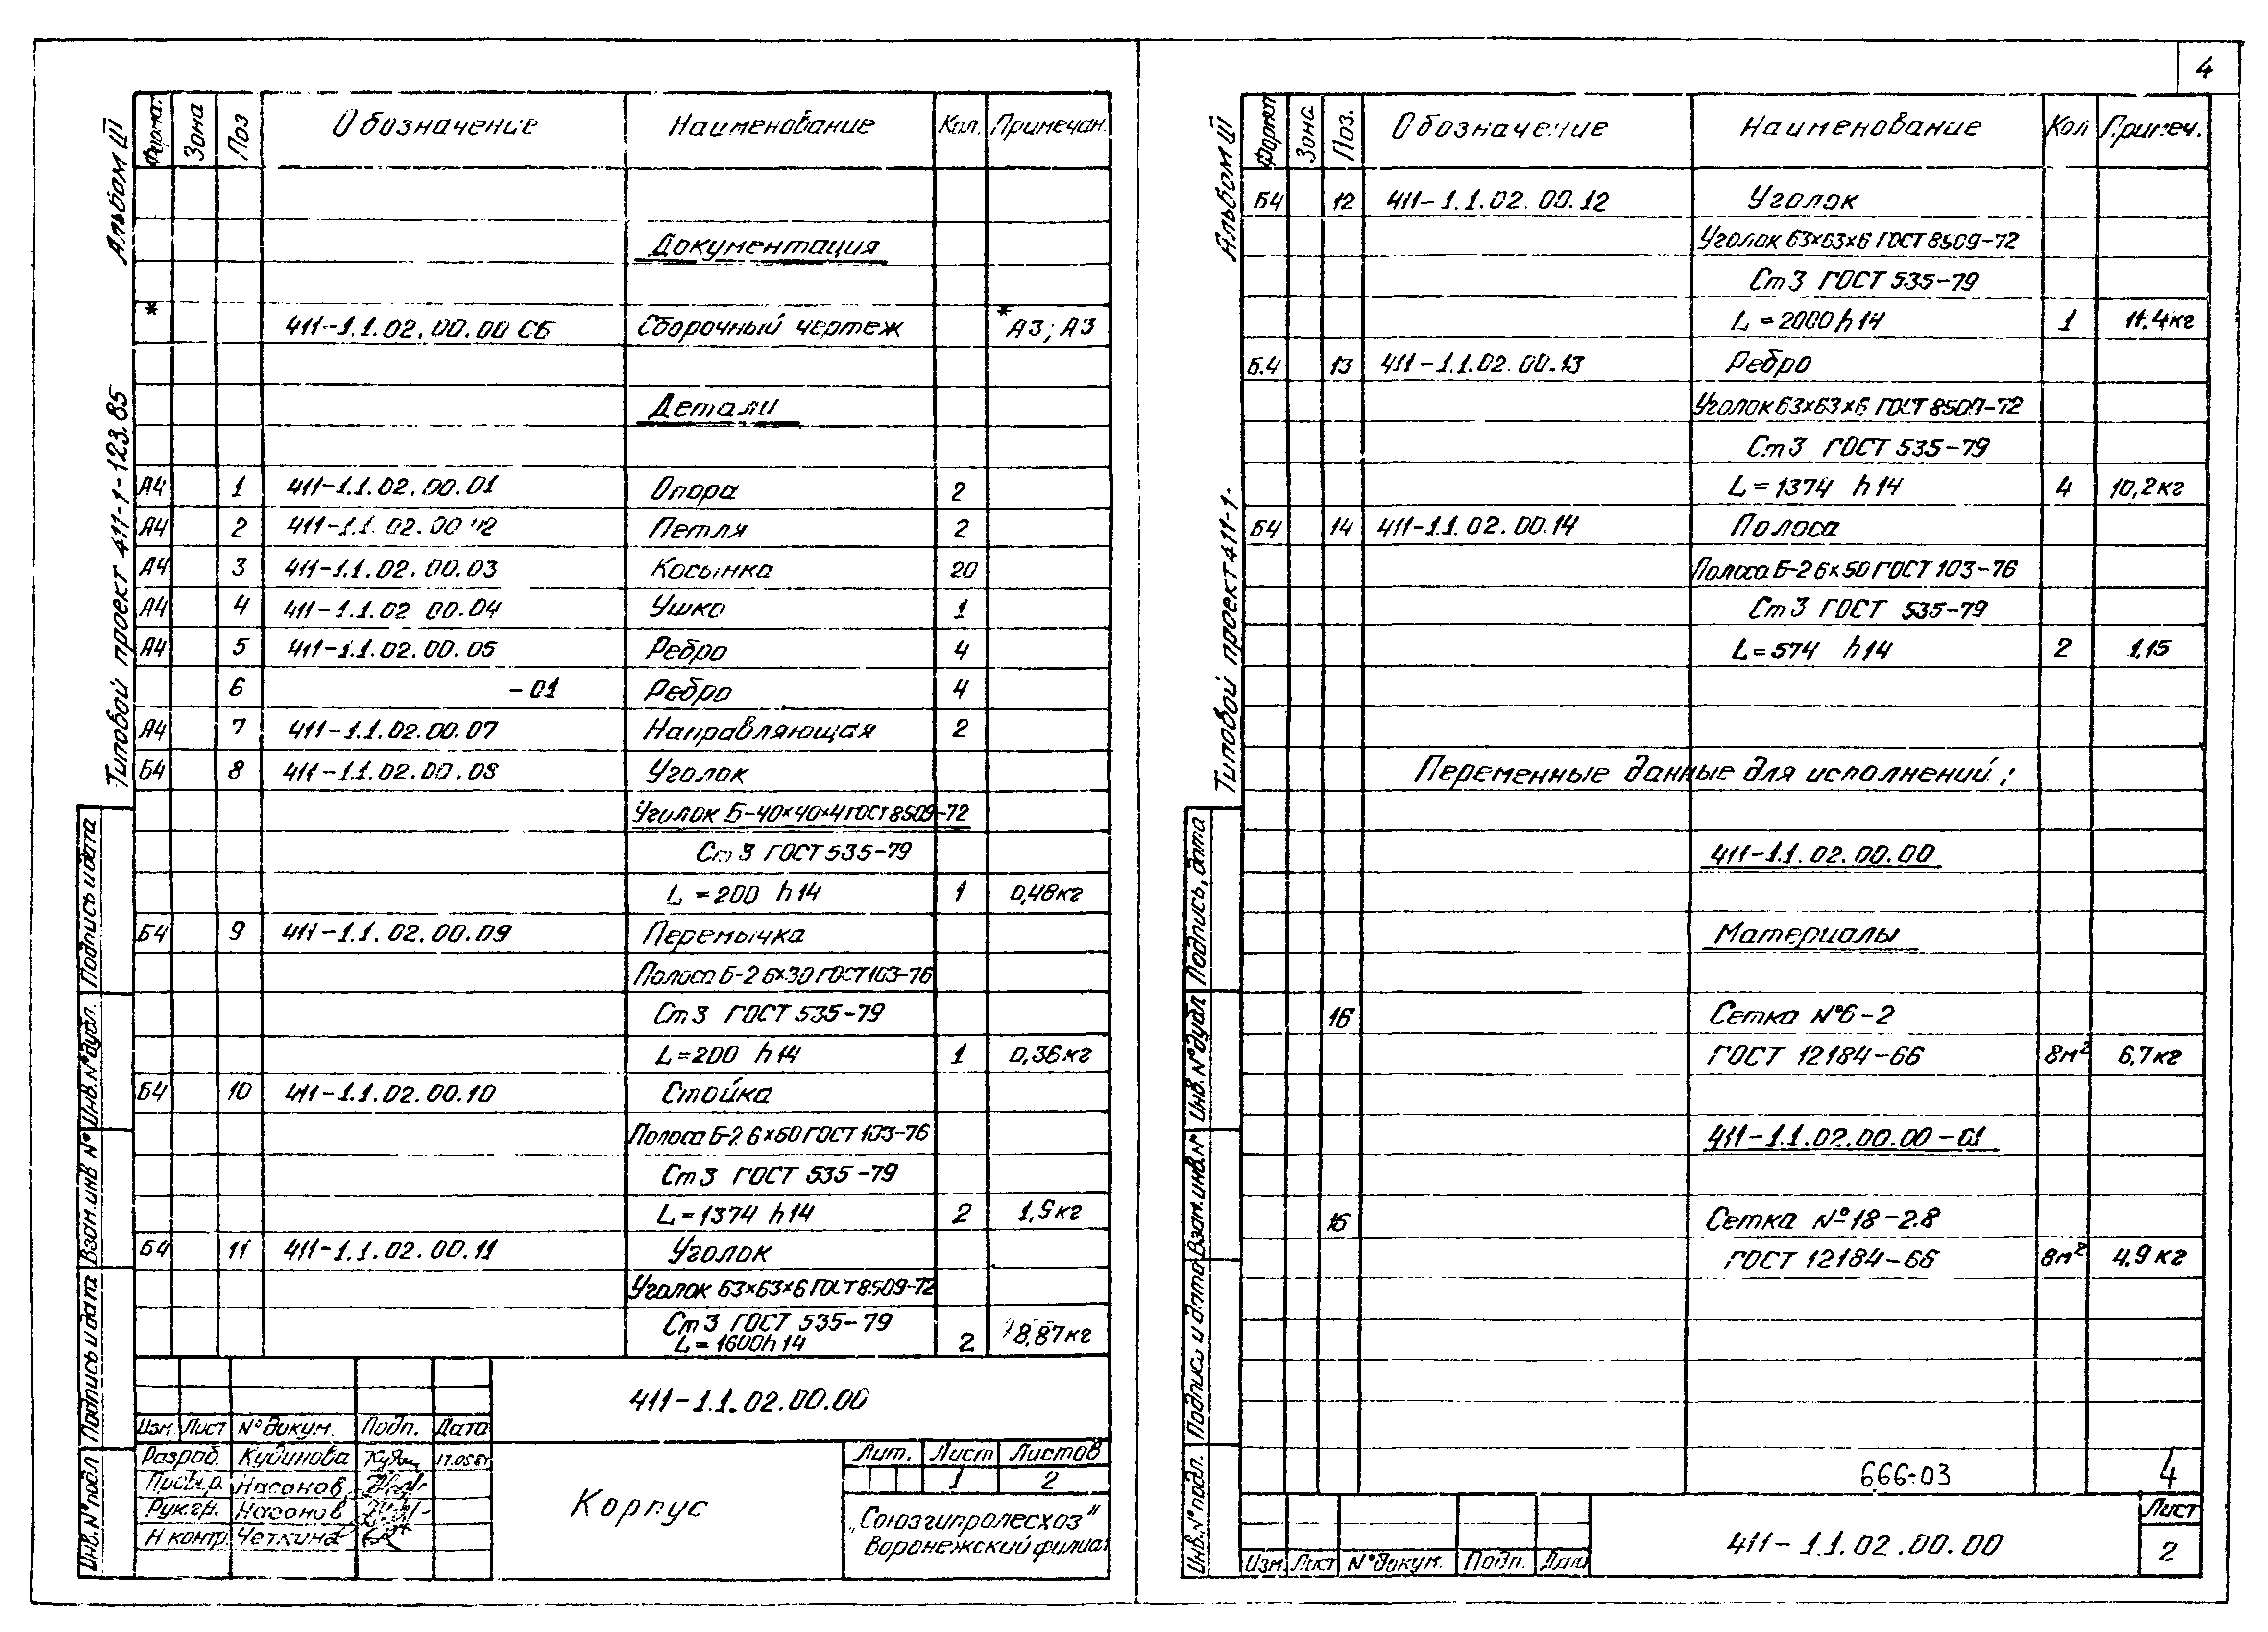 4
Альбом III
Типовой проект 411-1-123.85
Формат Зона Поз Обозначение Наименование Кол. Примечан.
Документация
* 411-1.1.02.00.00 СБ Сборочный чертеж *А3; А3
Детали
А4 1 411-1.1.02.00.01 Опора 2
А4 2 411-1.1.02.00 02 Петля 2
А4 3 411-1.1.02.00.03 Косынка 20
А4 4 411-1.1.02 00.04 Ушко 1
А4 5 411-1.1.02.00.05 Ребро 4
6 -01 Ребро 4
А4 7 411-1.1.02.00.07 Направляющая 2
Б4 8 411-1.1.02.00.08 Уголок
Уголок Б-40×40×4 ГОСТ 8509-72
Ст 3 ГОСТ 535-79
L=200 h14 1 0,48кг
Б4 9 411-1.1.02.00.09 Перемычка
Полоса Б-2 6×30 ГОСТ 103-76
Ст 3 ГОСТ 535-79
L=200 h14 1 0,36кг
Б4 10 411-1.1.02.00.10 Стойка
Полоса Б-2 6×50 ГОСТ 103-76
Ст 3 ГОСТ 535-79
L=1374 h14 2 1,9кг
Б4 11 411-1.1.02.00.11 Уголок
Уголок 63×63×6 ГОСТ 8509-72
Ст 3 ГОСТ 535-79
L=1600h14 2 8,87кг
411-1.1.02.00.00
Изм. Лист № докум. Подп. Дата
Разраб. Кудинова
Провер. Насонов
Рук.гр. Насонов
Н контр. Четкина
Корпус
Лит. Лист Листов
1 2
„Союзгипролесхоз"
Воронежский филиал
Подпись и дата
Инв. № дубл.
Взам. инв №
Подпись и дата
Инв. № подл
Альбом III
Типовой проект 411-1-
Формат Зона Поз. Обозначение Наименование Кол Примеч.
Б4 12 411-1.1.02.00.12 Уголок
Уголок 63×63×6 ГОСТ 8509-72
Ст 3 ГОСТ 535-79
L=2000 h14 1 11.4кг
Б.4 13 411-1.1.02.00.13 Ребро
Уголок 63×63×6 ГОСТ 8509-72
Ст 3 ГОСТ 535-79
L=1374 h14 4 10,2кг
Б4 14 411-1.1.02.00.14 Полоса
Полоса Б-2 6×50 ГОСТ 103-76
Ст 3 ГОСТ 535-79
L=574 h14 2 1,15
Переменные данные для исполнений:
411-1.1.02.00.00
Материалы
16 Сетка №6-2
ГОСТ 12184-66 8м² 6,7кг
411-1.1.02.00.00-01
16 Сетка №18-2.8
ГОСТ 12184-66 8м² 4,9кг
666-03 4
Изм. Лист № докум. Подп. Дата
411-1.1.02.00.00
Лист
2
Подпись, дата
Инв. № дубл
Взам. инв. №
Подпись и дата
Инв. № подл.